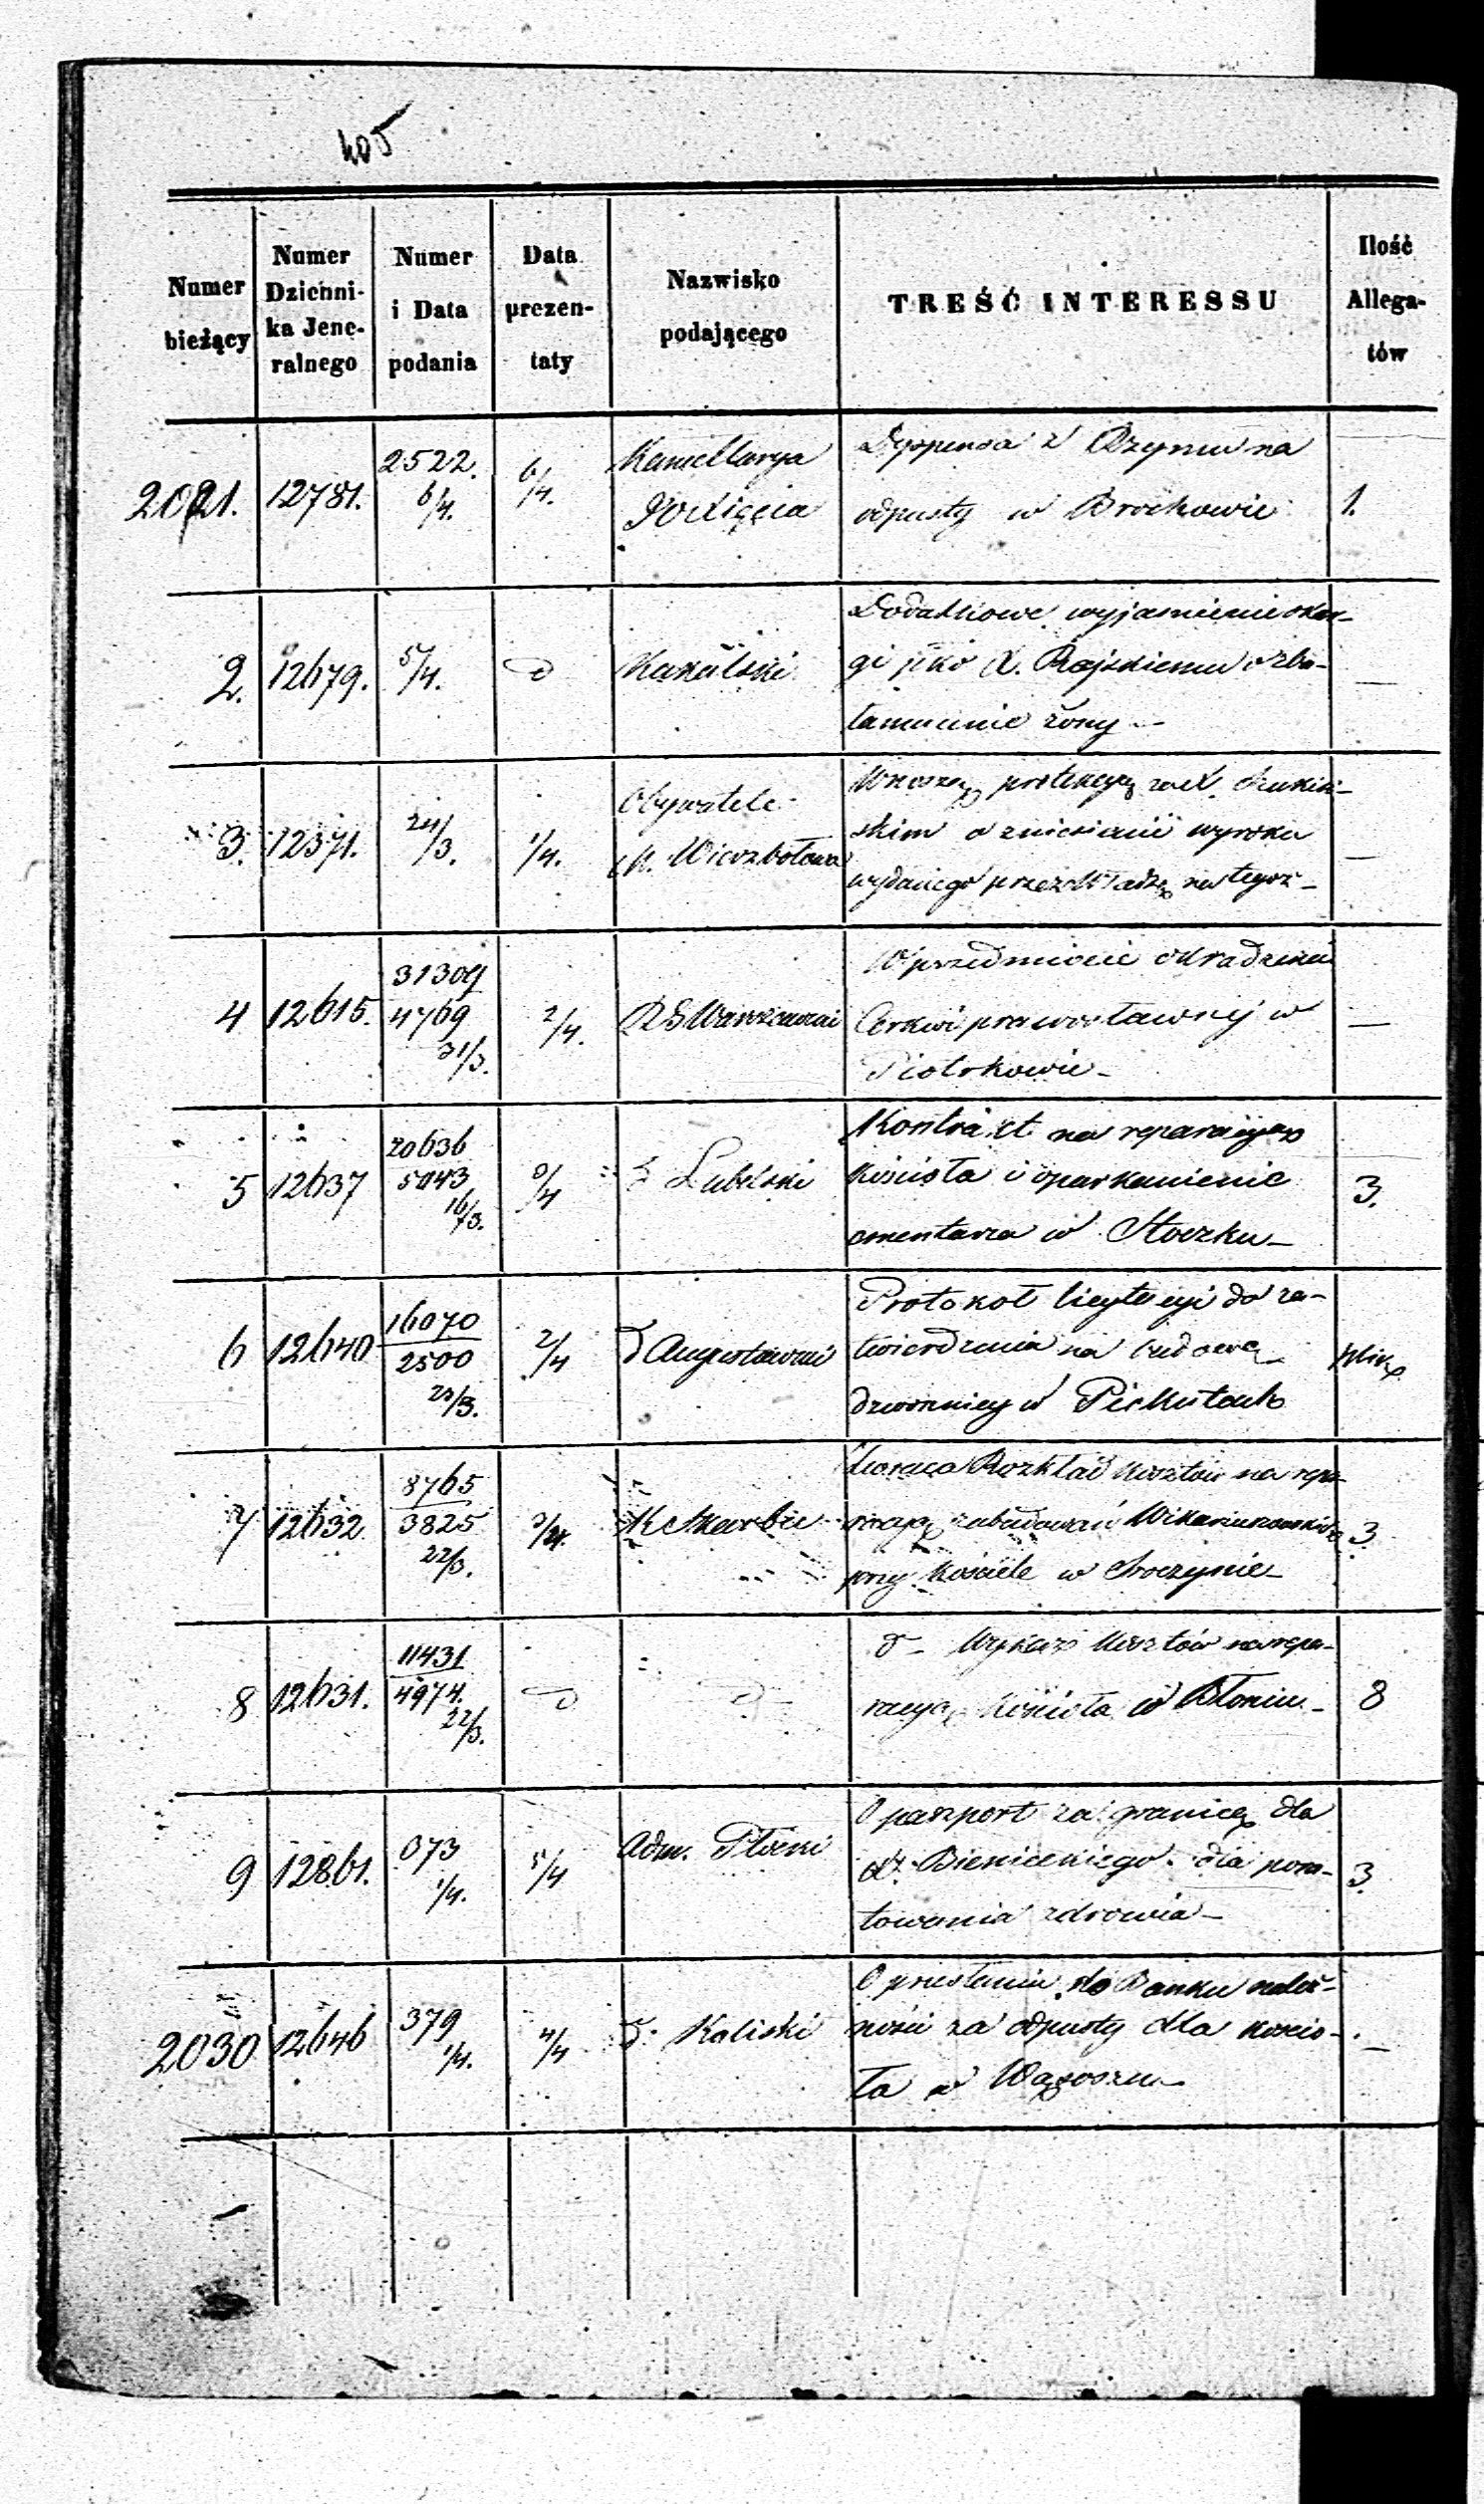 405
Numer bieżący
Numer Dzienni-
ka Jene-
ralnego
Numer
i Data
podania
Data
prezen-
taty
Nazwisko
podającego
TREŚĆ INTERESSU
Ilość
Allega-
tów
2021. 12781. 2522. 6/4. 6/4. Kancellarya Dyspensa z Rzymu na
Xsięcia odpusty w Brochowie 1.
2. 12679. 5/4. d Kukulski Dodatkowe wyjasnienie skar-
gi pko X. Rajskiemu o zba-
łamucenie żony —
3. 12371. 24/3. 1/4. Obywatele Wnoszą protekcyą za X.
m. Wierzbołowa skim o zniesienie wyroku
wydanego przez Władzę na tegoż —
4 12615. 31309 / 4769 31/3. 2/4. RG Warszawski W przedmiocie okradzenia
Cerkwi prawosławnej w —
Piotrkowie —
5 12637 20636 / 5043 16/3. 3/4 d Lubelski Kontrakt na reparacyą
kościoła i oparkanienie 3.
cmentarza w Stoczku —
6 12640 16070 / 2500 23/3. 2/4 d Augustowski Protokół licytacyi do za-
twierdzenia na budowę plik
dzwonnicy w Piekutach
7 12632 8765 / 3825 22/3. 3/4. K Skarbu Rozkład kosztów na repa-
racyą zabudowań Wikaryuszowskich 3
przy kościele w
8 12631. 11431 / 4974. 22/3. d d d — Wykaz kosztów na repa-
racyą kościoła w Błoniu — 8
9 12861. 373 1/4. 5/4 Adm. Płocki O paszport za granicę dla
X. Bienieckiego dla pora- 3
towania zdrowia —
2030 12646 379 1/4. 4/4 d: Kaliski O przesłaniu do Banku należ-
ności za odpusty dla kościo- —
ła w Wąsoszu —